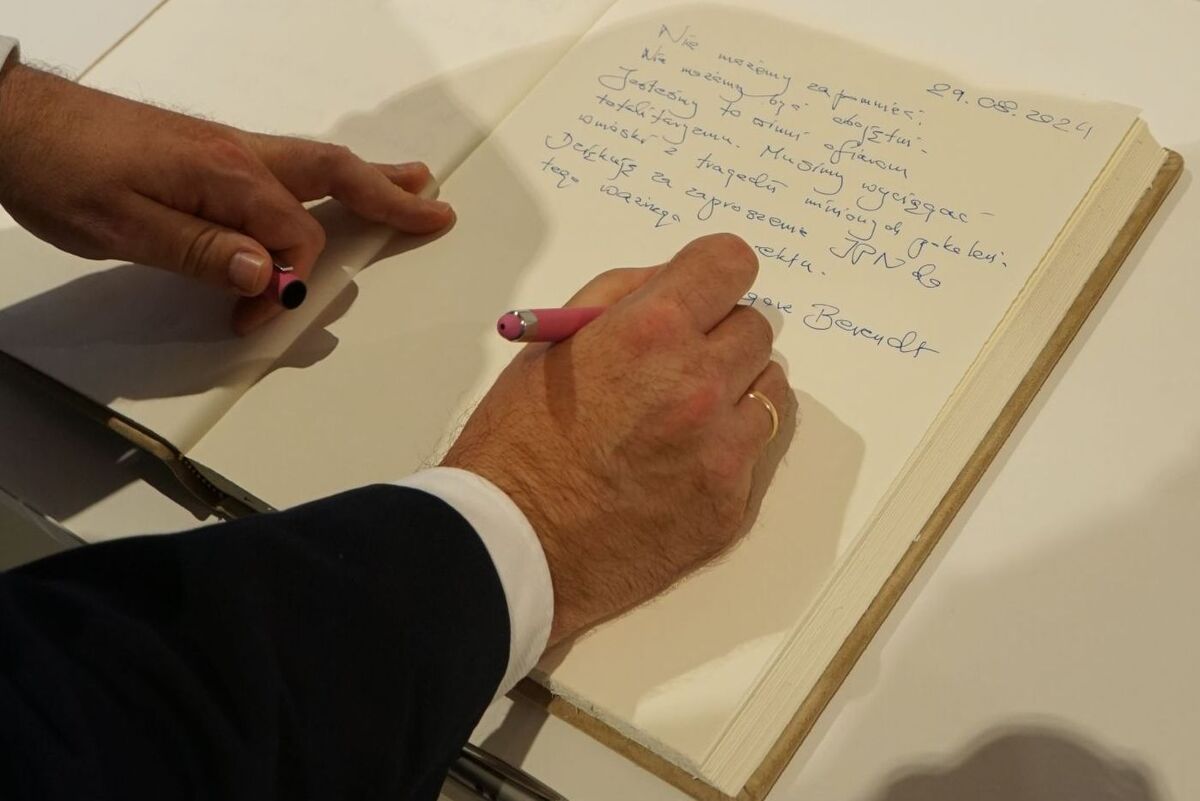 29.08.2024
Nie możemy zapomnieć;
Nie możemy być obojętni.
Jesteśmy to winni ofiarom
totalitaryzmu. Musimy wyciągać
wnioski z tragedii minionych pokoleń.
Dziękuję za zaproszenie IPN do
tego ważnego
Berendt